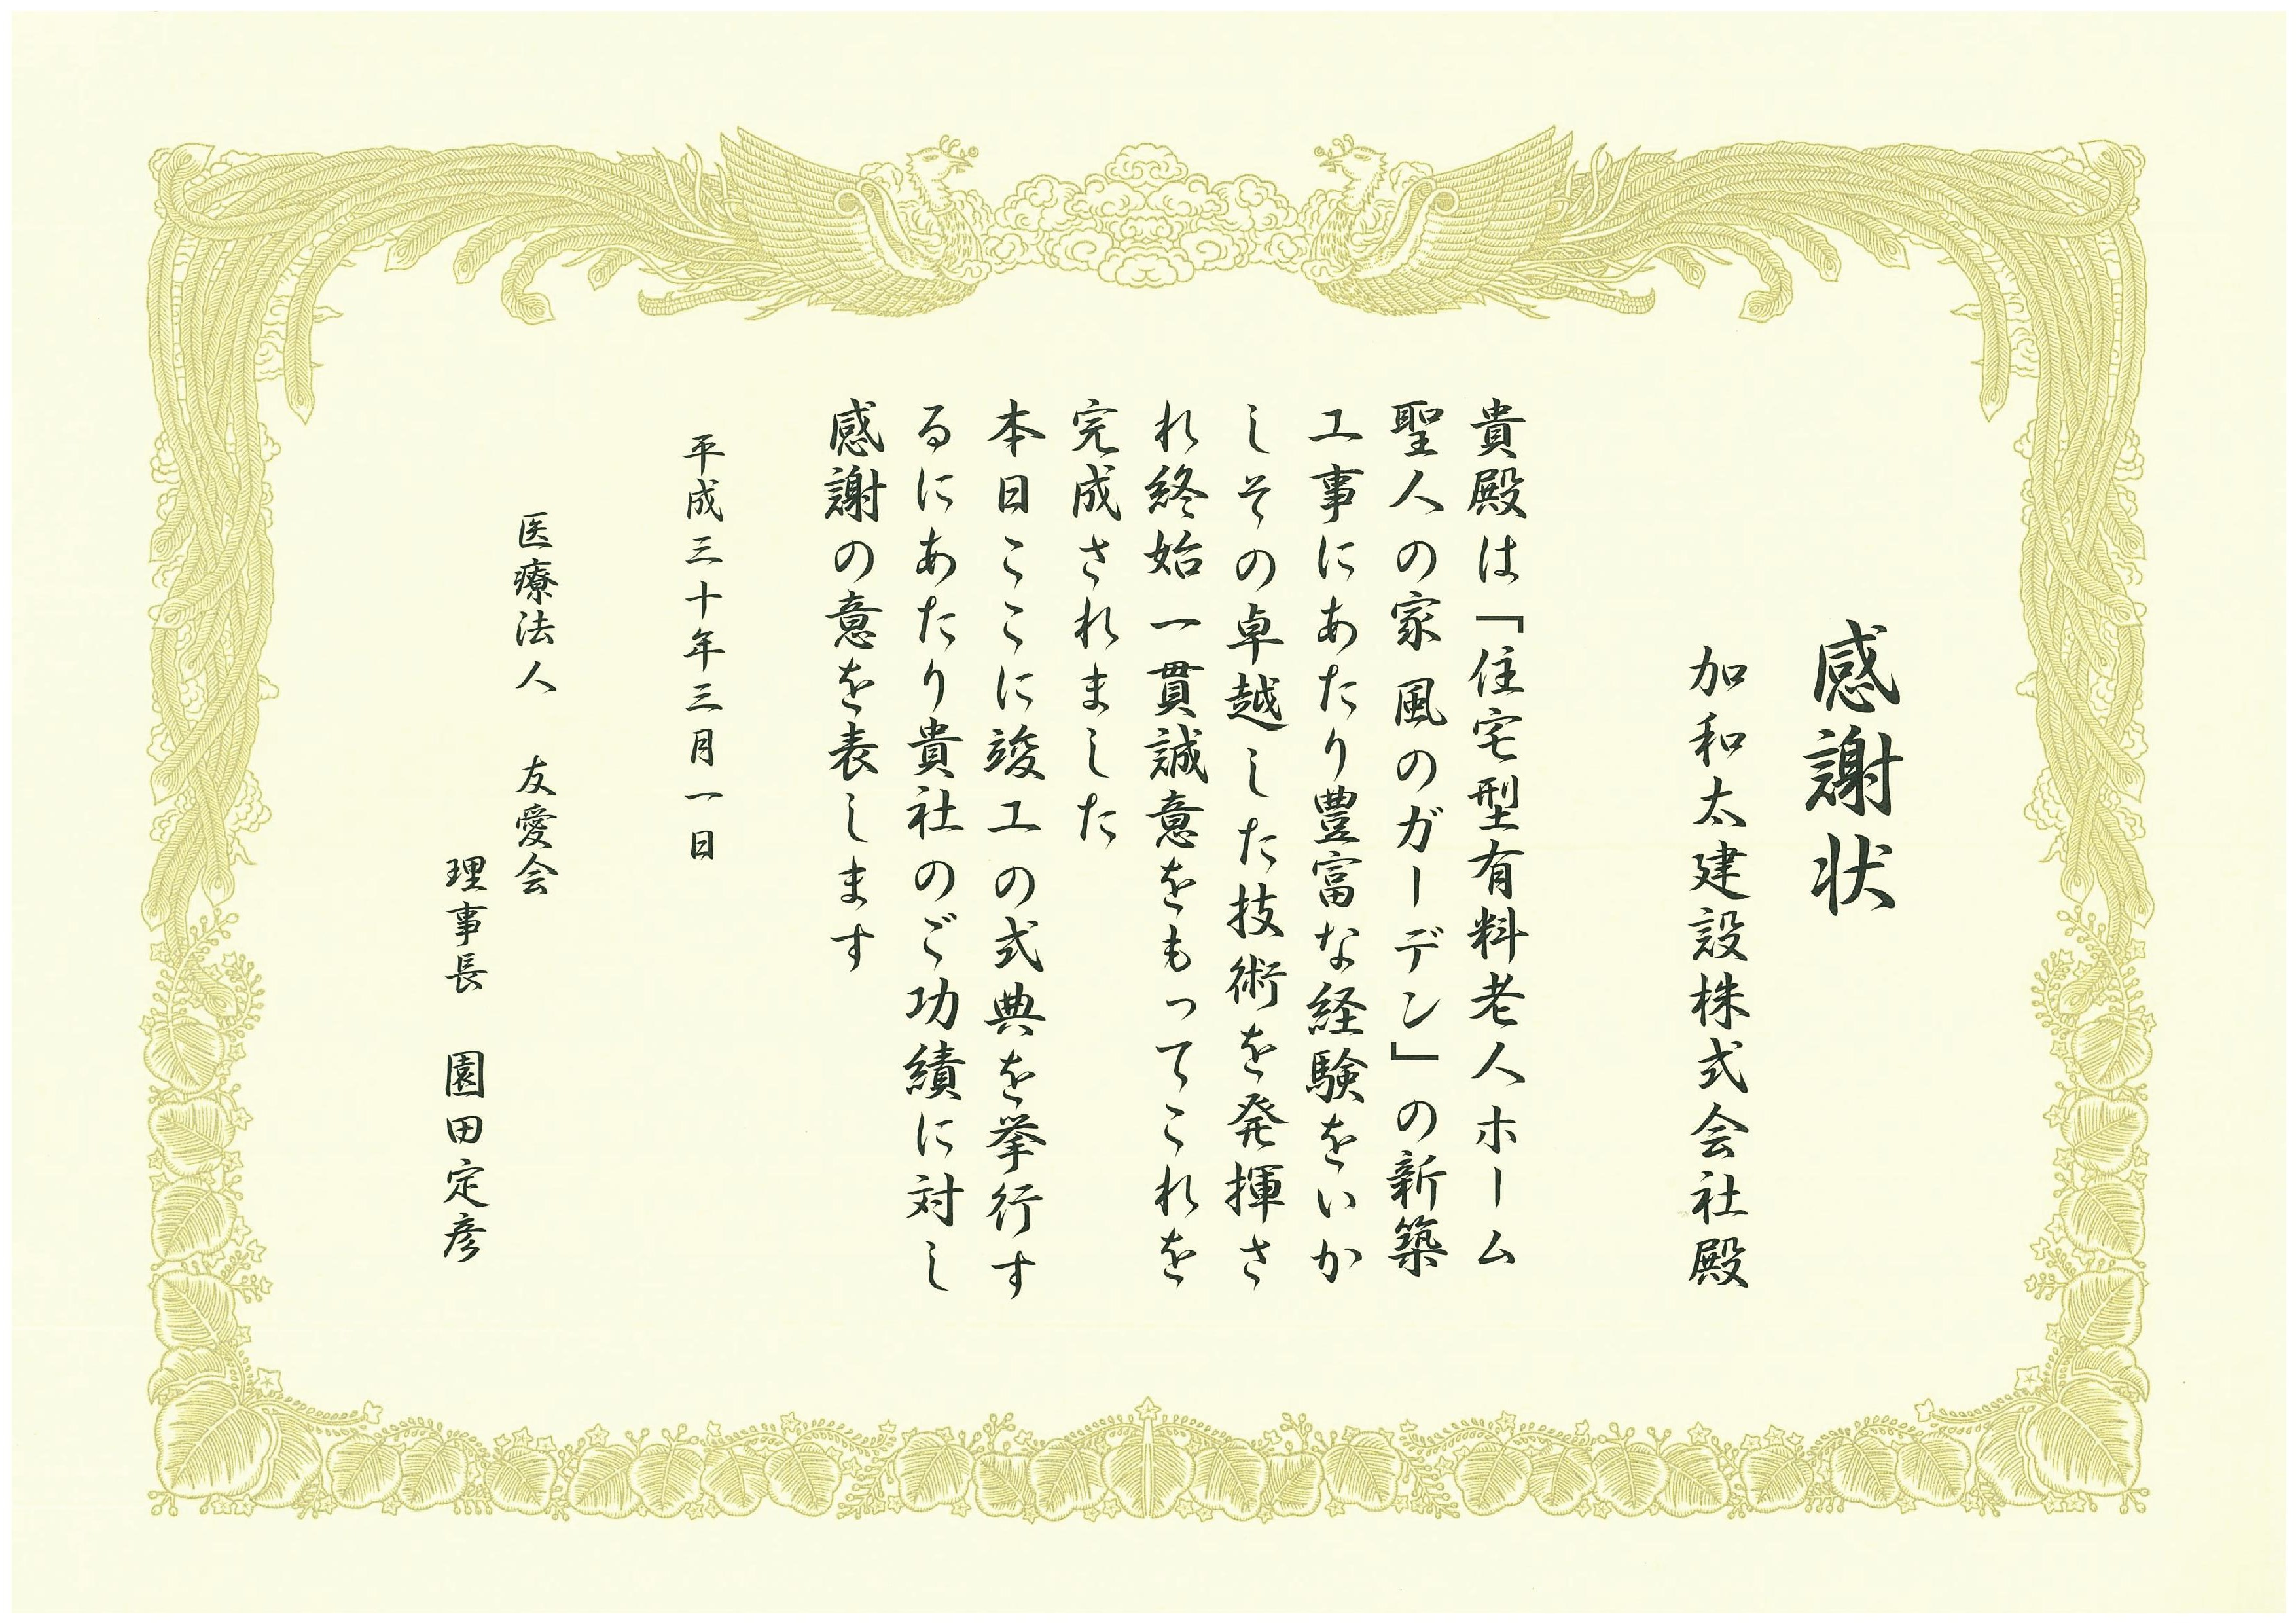 感謝状
加和太建設株式会社殿
貴殿は「住宅型有料老人ホーム
聖人の家風のガーデン」の新築
工事にあたり豊富な経験をいか
しその卓越した技術を発揮さ
れ終始一貫誠意をもってこれを
完成されました
本日ここに竣工の式典を挙行す
るにあたり貴社のご功績に対し
感謝の意を表します
平成三十年三月一日
医療法人 友愛会
理事長 園田定彦